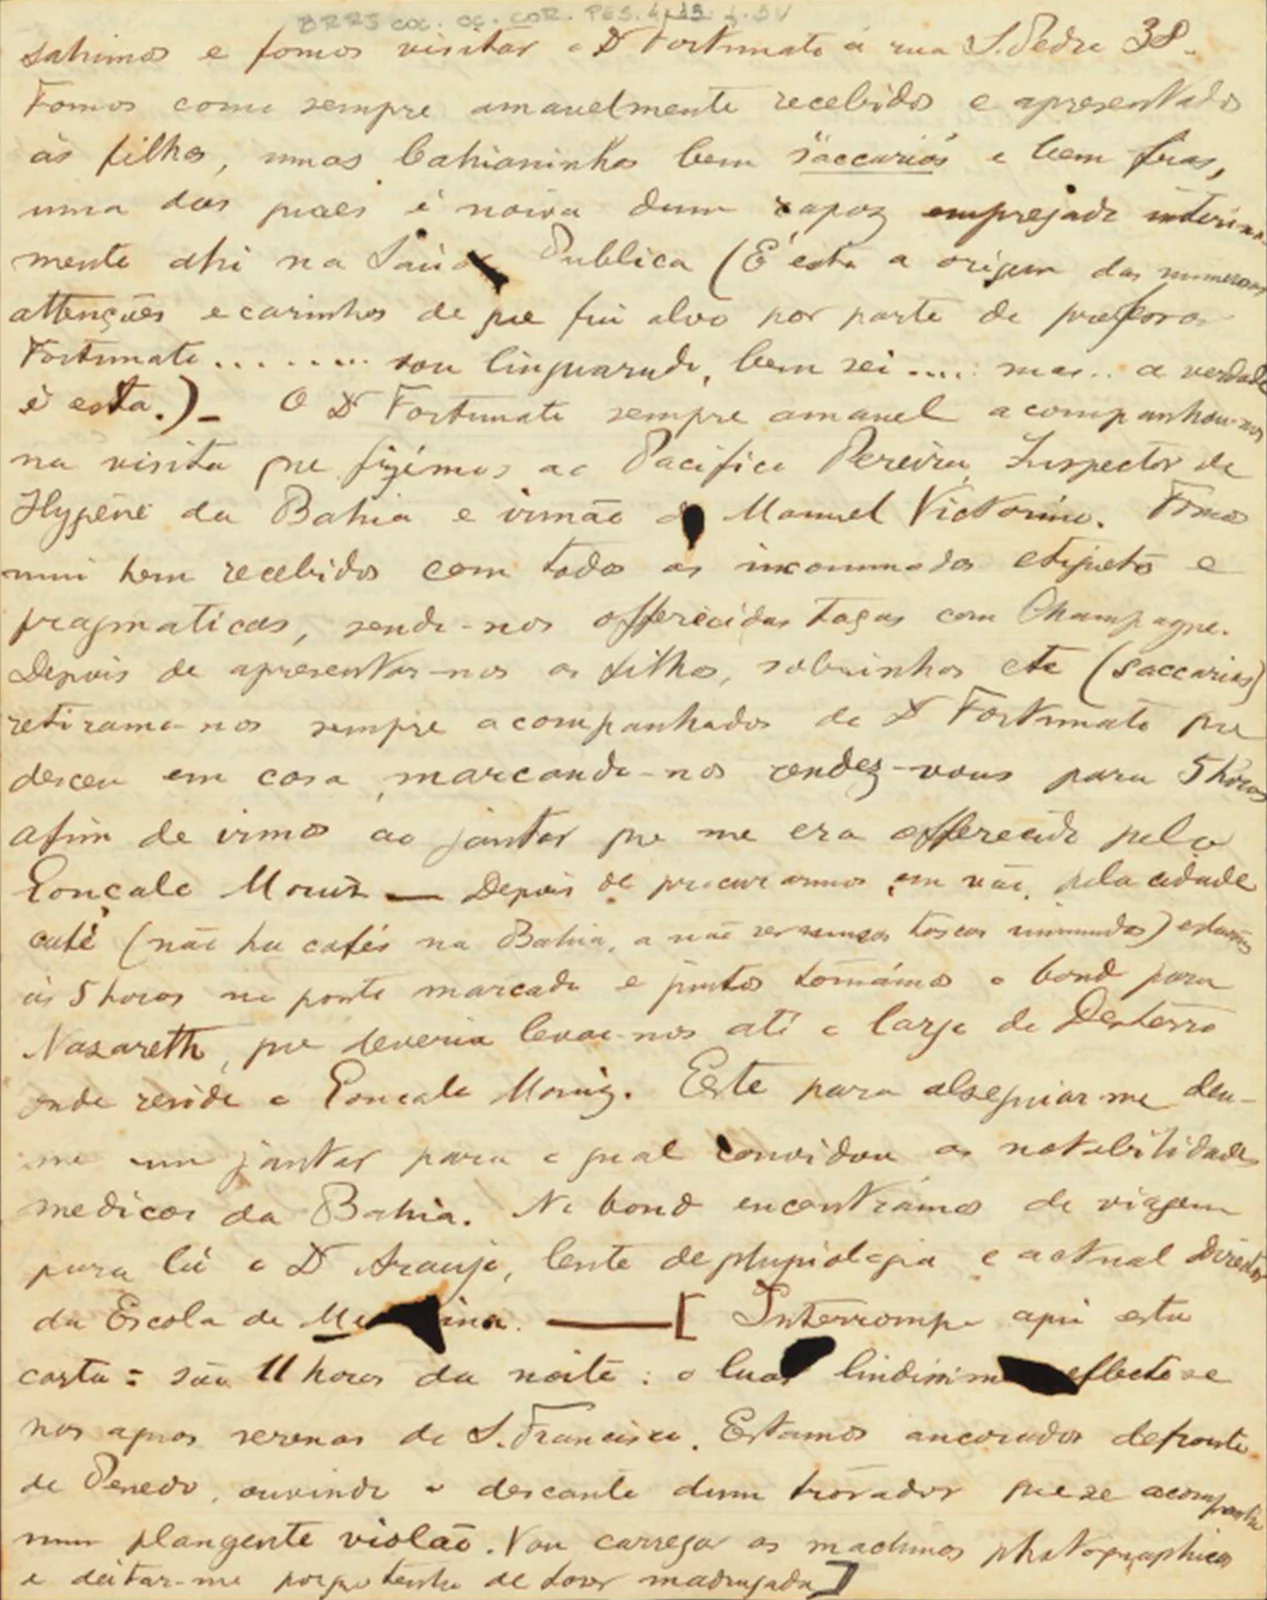 BRRJ COC. OC. COR. PES. 4, 13. f. 3V
sahimos e fomos visitar o Dr Fortunato á rua S. Pedro 38.
Fomos como sempre amavelmente recebidos e apresentados
ás filhas, umas bahianinhas bem "saccariás" e bem frias,
uma das quaes é noiva dum rapaz empregado interina-
mente ahi na Saúde Publica (É esta a origem das numerosas
attenções e carinhos de que fui alvo por parte do professor
Fortunato........ sou linguarudo, bem sei .... mas .. a verdade
é esta.)_ O Dr Fortunato sempre amavel acompanhou-nos
na visita que fizémos ao Pacifico Pereira, Inspector de
Hygiene da Bahia e irmão do Manuel Victorino. Fomos
mui bem recebidos com todas as incommodas etiquetas e
pragmaticas, sendo-nos offerecidas taças com Champagne.
Depois de apresentar-nos as filhas, sobrinhas etc (saccarias)
retiramo-nos sempre acompanhados do Dr Fortunato que
desceu em casa, marcando-nos rendez-vous para 5 horas
afim de irmos ao jantar que me era offerecido pelo
Gonçalo Moniz — Depois de procurarmos, em vão, pela cidade
café (não ha cafés na Bahia, a não ser toscas immundos) estavamos
ás 5 horas no ponto marcado e juntos tomámos o bond para
Nazareth, que deveria levar-nos até o largo do Desterro
onde reside o Gonçalo Moniz. Este para obsequiar-me deu-
me um jantar para o qual convidou as notabilidades
medicas da Bahia. No bond encontrámos de viagem
para lá o Dr Araujo, lente de physiologia e actual Director
da Escola de Me ina. — [ Interrompo aqui esta
carta: são 11 horas da noite: o luar lindissim eflecte-se
nas aguas serenas do S. Francisco. Estamos ancorados defronte
de Penedo, ouvindo o descante dum trovador que se acompanha
num plangente violão. Vou carregar as machinas photographicas
e deitar-me porque tenho de fazer madrugada]